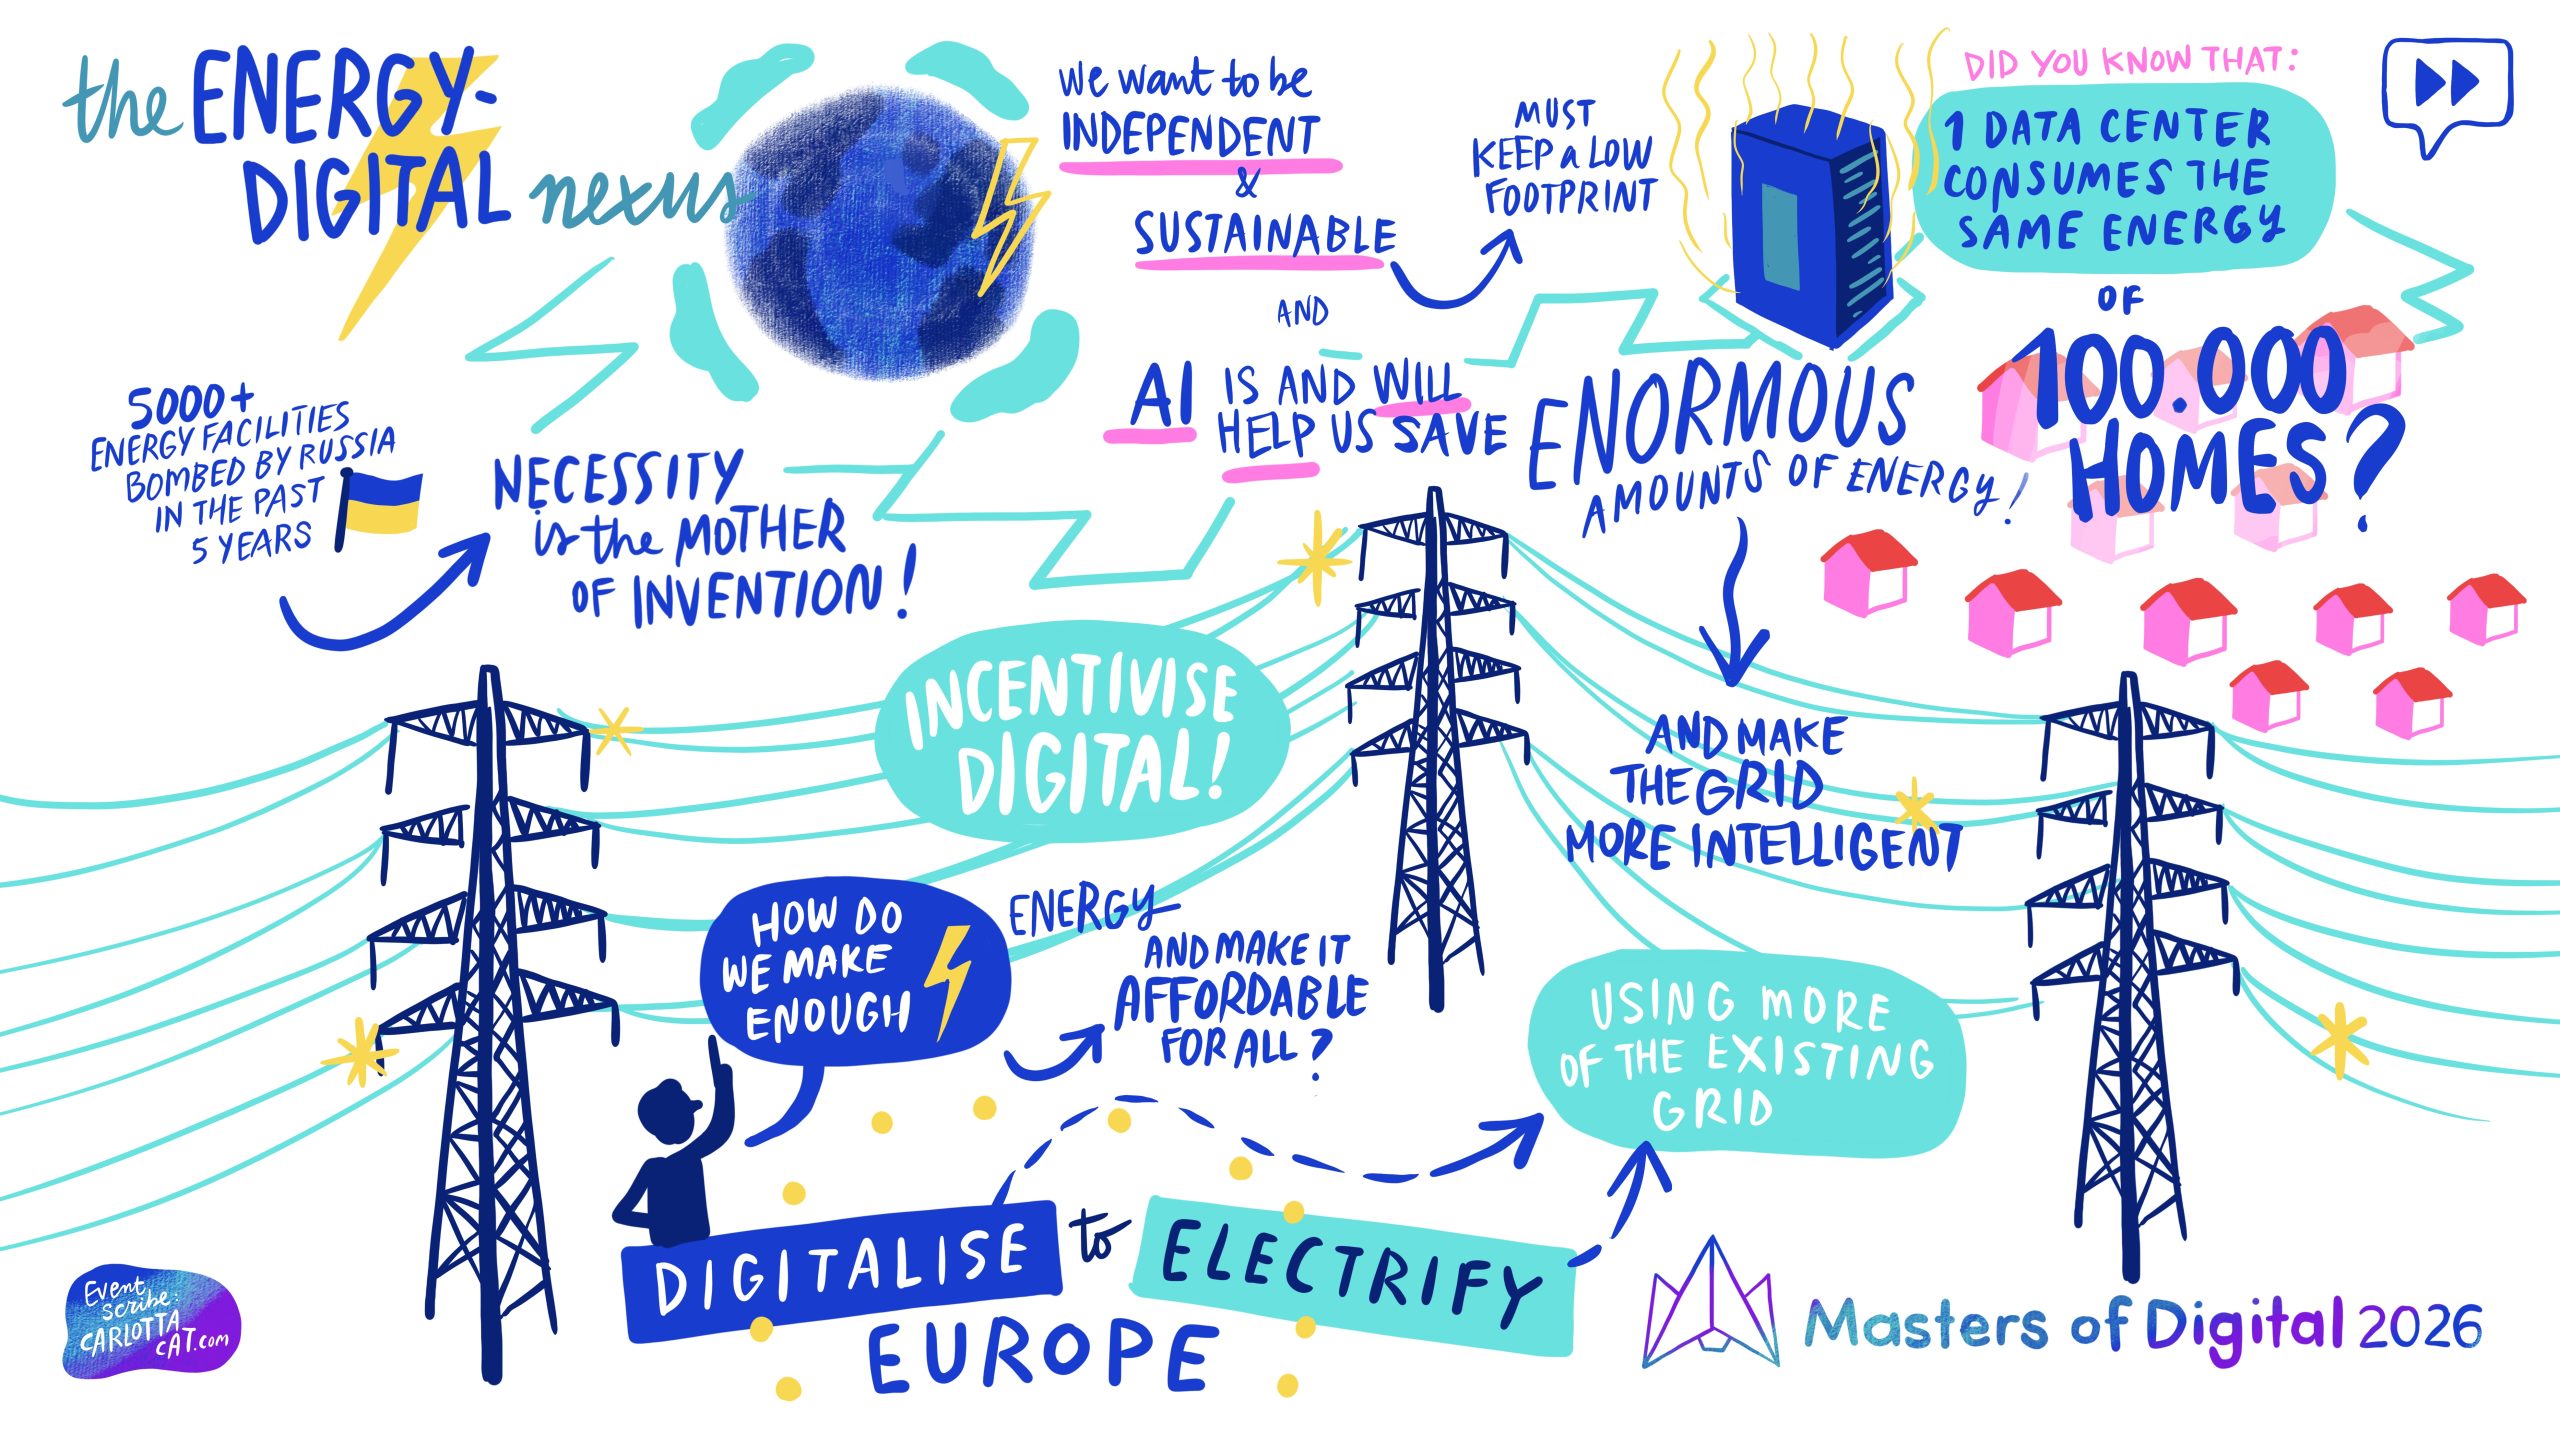 the ENERGY-
DIGITAL nexus
We want to be
INDEPENDENT
&
SUSTAINABLE
MUST
KEEP a LOW
FOOTPRINT
DID YOU KNOW THAT:
1 DATA CENTER
CONSUMES THE
SAME ENERGY
OF
100.000
HOMES?
5000+
ENERGY FACILITIES
BOMBED BY RUSSIA
IN THE PAST
5 YEARS
NECESSITY
is the MOTHER
OF INVENTION!
AND
AI IS AND WILL
HELP US SAVE
ENORMOUS
AMOUNTS OF ENERGY!
AND MAKE
THE GRID
MORE INTELLIGENT
INCENTIVISE
DIGITAL!
HOW DO
WE MAKE
ENOUGH
ENERGY
AND MAKE IT
AFFORDABLE
FOR ALL?
USING MORE
OF THE EXISTING
GRID
DIGITALISE to ELECTRIFY
EUROPE
Event
scribe:
CARLOTTA
CAT.com
Masters of Digital 2026